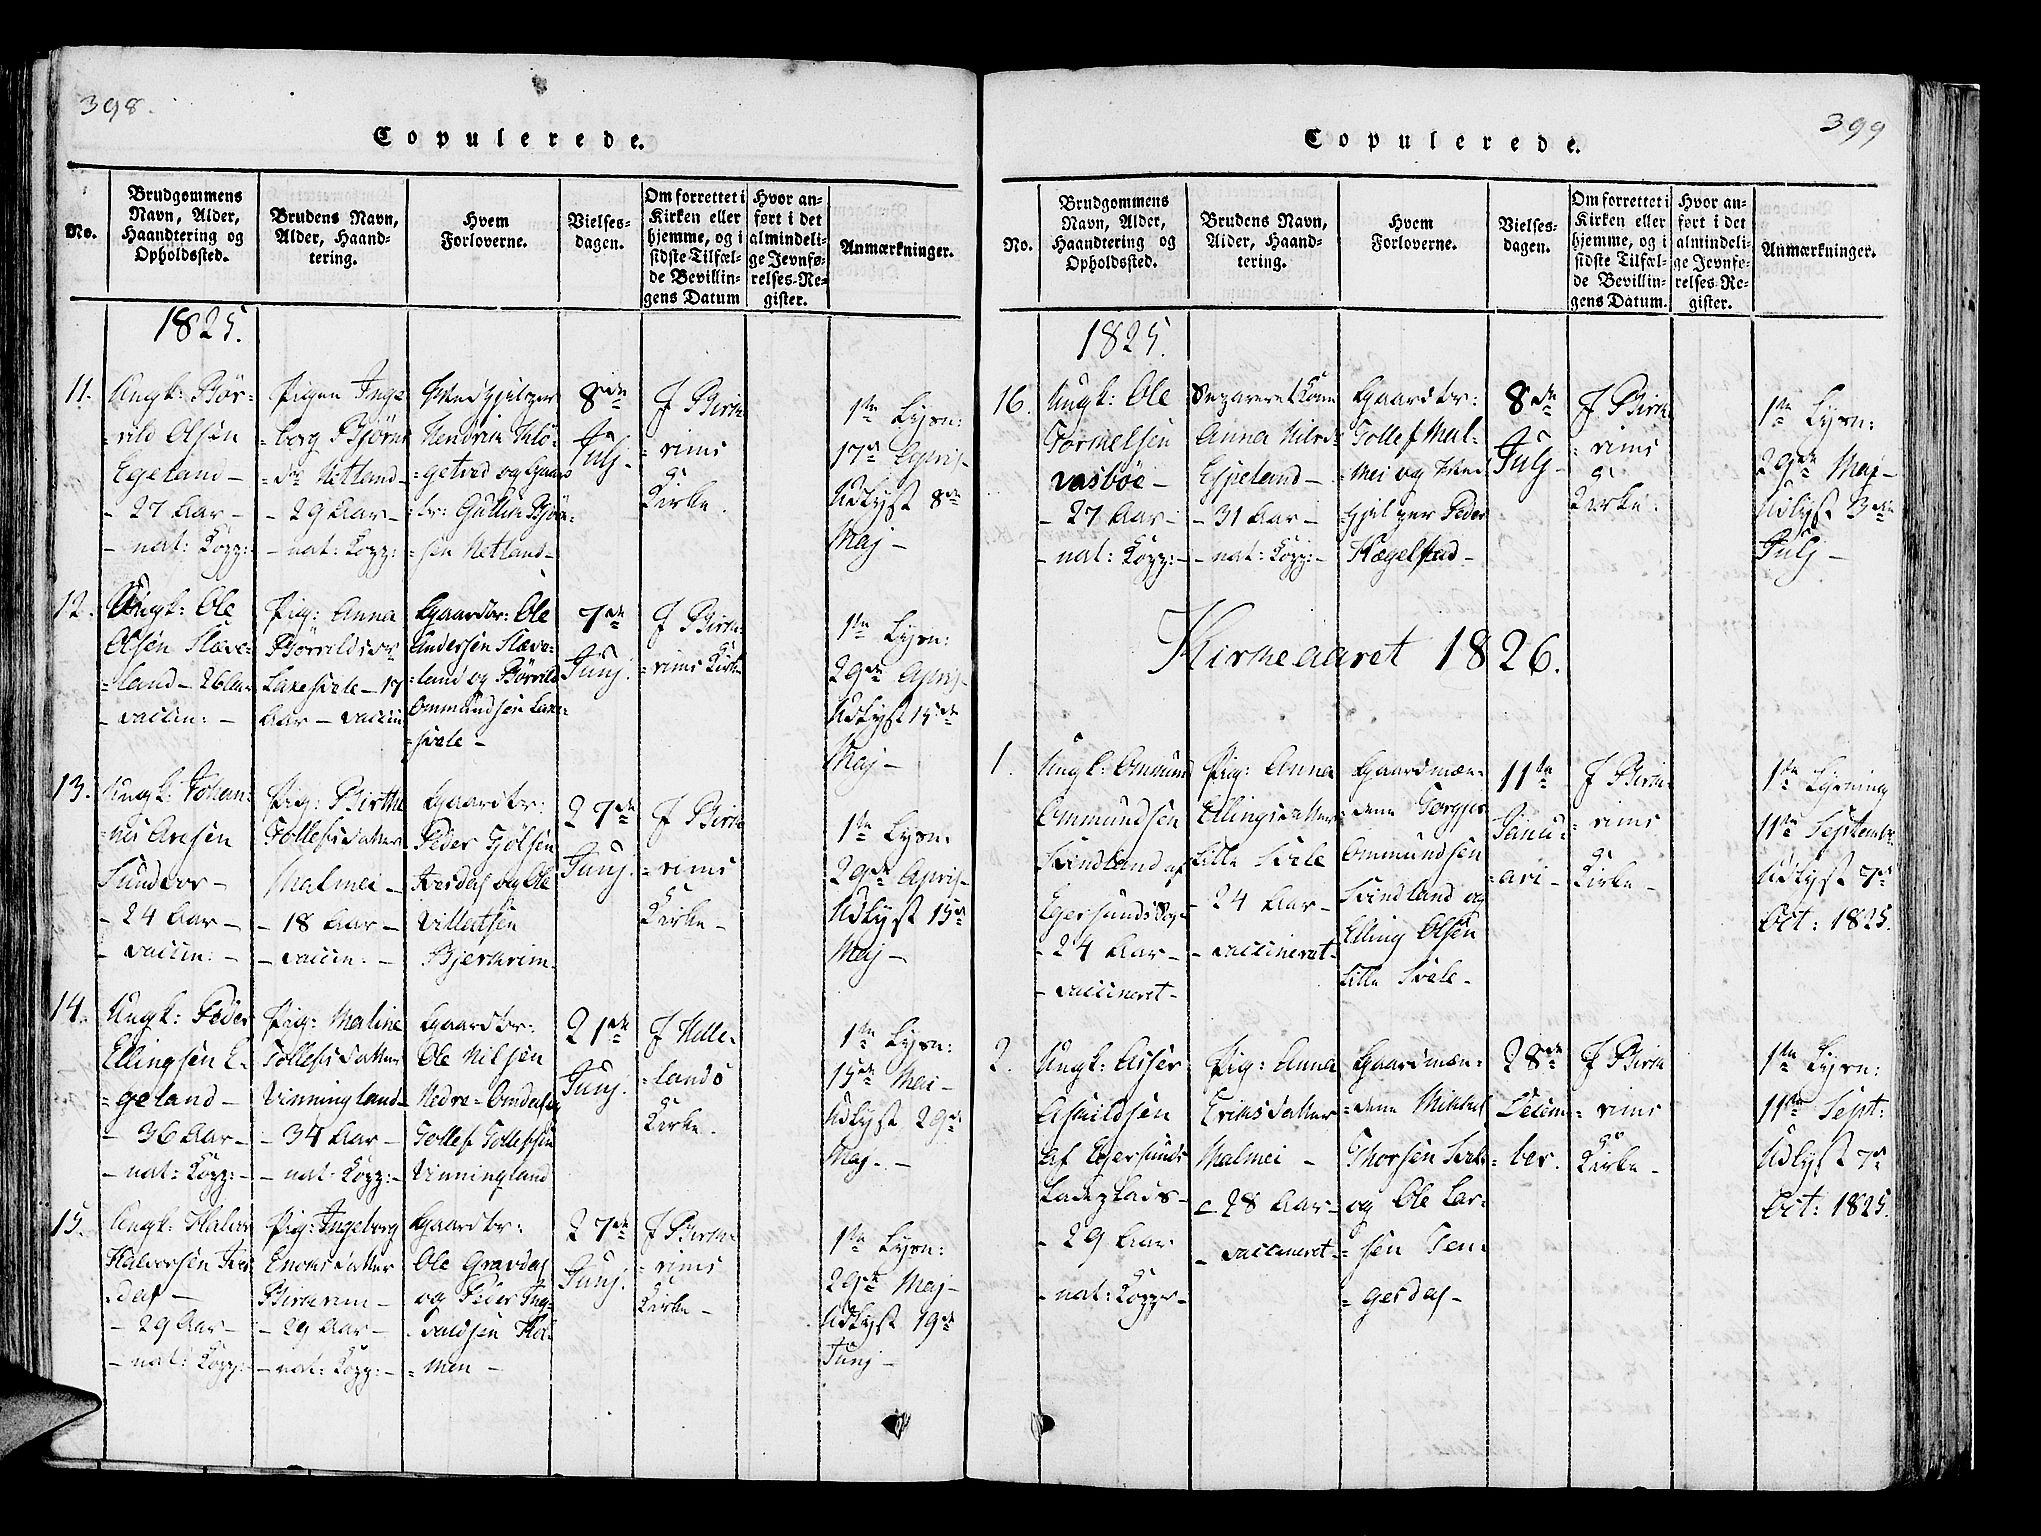 398.
Copulerede.
No.
Brudgommens
Navn, Alder,
Haandtering og
Opholdssted.
Brudens Navn,
Alder, Haand-
tering.
Hvem
Forloverne.
Vielses-
dagen.
Om forrettet i
Kirken eller
hjemme, og i
sidste Tilfæl-
de Bevillin-
gens Datum
Hvor an-
ført i det
almindeli-
ge Jevnfø-
relses-Re-
gister.
Anmærkninger.
1825.
11.
Ungk: Bør-
=rild Olsen
Egeland -
- 27 Aar -
- nat: Kopp: -
Pigen Inge
=borg Bjørns
=dr Netland -
- 29 Aar -
- nat: Kopp: -
Medhjelper
Hendrik Klø-
=getved og Gaard
=br: Guttorm Bjørn-
sen Netland -
8de
Julj -
I Birk-
=rims
Kirke.
1ste Lysn:
17de April -
Udlyst 8de
Maj -
12.
Ungk: Ole
Olsen Slæve-
=land - 26 Aar
- vaccin: -
Pig: Anna
Børrildsdr
Laxesvele - 17
Aar - vaccin
Gaardbr: Ole
Andersen Slæve-
=land og Børrild
Ommundsen Laxe-
=svele -
7de
Junj.
I Birk-
=rims Kirke
1ste Lysn:
29de April -
Udlyst 15de
Maj -
13.
Ungk: Johan-
=nes Aresen
Sundvor -
- 24 Aar -
- vaccin: -
Pig: Birthe
Tollefsdatter
Malmei -
- 18 Aar -
- vaccin: -
Gaardbr:
Peder
og Ole
Villatsen
Bjerkrim -
27de
Junj.
I Birk
=rims
Kirke -
1ste Lysn:
29de April -
Udlyst 15de
Maj -
14.
Ungk: Peder
Ellingsen E-
=geland -
- 36 Aar -
- nat: Kopp: -
Pig: Maline
Tollefsdatter
Vinningland -
- 34 Aar -
- nat: Kopp: -
Gaardbr:
Ole Nilsen
Nedre-Omdal og
Tollef Tollefsen
Vinningland
21de
Junj.
I Helle-
=lands
Kirke -
1ste Lysn:
15de Mai -
Udlyst 29de
Maj -
15.
Ungk: Halvor
Halvorsen
=dal -
- 29 Aar -
- nat: Kopp: -
Pig: Ingeborg
Enoksdatter
Birkrim -
- 29 Aar -
- nat: Kopp: -
Gaardbr:
Ole Gravdal
og Peder Ing-
-valdsen Hol-
=men -
27de
Junj.
I Birk-
=rims
Kirke -
1ste Lysn:
29de Maj -
Udlyst 19de
Junj -
399
Copulerede.
No.
Brudgommens
Navn, Alder,
Haandtering og
Opholdssted.
Brudens Navn,
Alder, Haand-
tering.
Hvem
Forloverne.
Vielses-
dagen.
Om forrettet i
Kirken eller
hjemme, og i
sidste Tilfæl-
de Bevillin-
gens Datum.
Hvor an-
ført i det
almindeli-
ge Jevnfø-
relses-Re-
gister.
Anmærkninger.
1825.
16.
Ungk: Ole
Tormelsen
Vasbøe -
- 27 Aar -
- nat: Kopp: -
Separeret Kone
Anna Nilsdr
Espeland -
- 31 Aar -
- nat: Kopp: -
Gaardbr:
Tollef Mal-
=mei og Med
=hjelper Peder
Hægelstad -
8de
Julj -
I Birk-
=rims
Kirke.
1ste Lysn:
29de Maj -
Udlyst 3die
Julj -
Kirkeaaret 1826.
1.
Ungk: Ommund
Ommundsen
Svindland af
Egersunds Sogn
- 24 Aar -
- vaccineret -
Pig: Anna
Ellingsdatter
Lille Svele
- 24 Aar -
- vaccineret -
Gaardmæn-
=dene Torgjer
Ommundsen
Svindland og
Elling Olsen
Lille Svele -
11te
Janu-
=ari -
I Birk-
=rims
Kirke -
1ste Lysning
11te September
Udlyst 7de
Oct: 1825.
2.
Ungk: Asser
Asvildsen
af Egersunds
Ladeplads -
- 29 Aar
- nat: Kopper -
Pig: Anna
Eriksdatter
Malmei -
- 28 Aar -
- vaccineret -
Gaardmæn-
=dene Mikkel
Thorsen Svele
og Ole Lar-
=sen Ten-
=gesdal -
28de
Decem
=ber.
I Birk
=rims
Kirke -
1ste Lysn:
11te Sept:
Udlyst 7de
Oct: 1825.